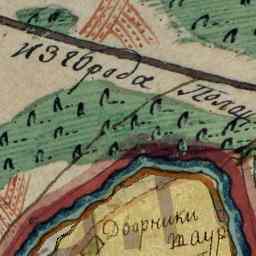 из города
Дворники
таур